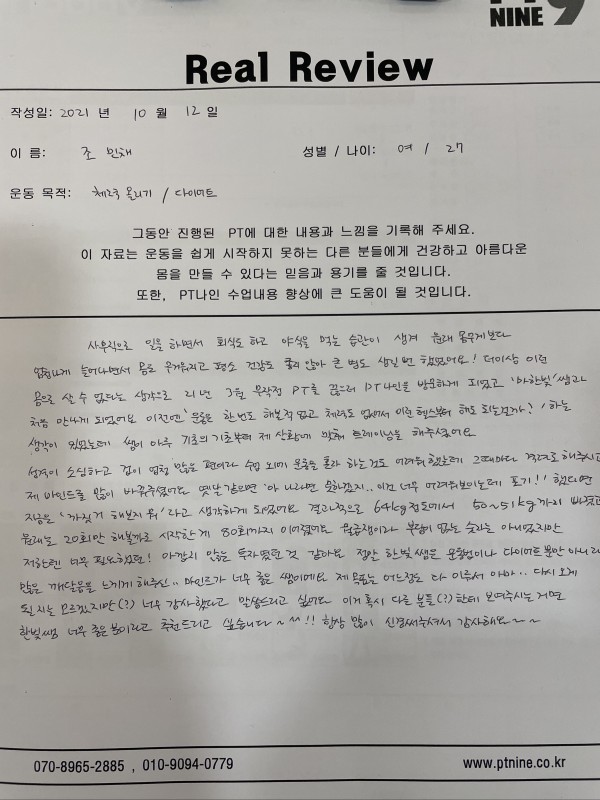 NINE 9
Real Review
작성일: 2021 년 10 월 12 일
이 름: 조 민채 성별 / 나이: 여 / 27
운동 목적: 체력 올리기 / 다이어트
그동안 진행된 PT에 대한 내용과 느낌을 기록해 주세요.
이 자료는 운동을 쉽게 시작하지 못하는 다른 분들에게 건강하고 아름다운
몸을 만들 수 있다는 믿음과 용기를 줄 것입니다.
또한, PT나인 수업내용 향상에 큰 도움이 될 것입니다.
사무직으로 일을 하면서 회식도 하고 야식을 먹는 습관이 생겨 원래 몸무게보다
엄청나게 늘어나면서 몸도 무거워지고 평소 건강도 좋지 않아 큰 병도 생길 뻔 했었어요! 더이상 이런
몸으로 살 수 없다는 생각으로 21년 3월 무작정 PT를 끊으러 PT나인을 방문하게 되었고 '마한빛' 쌤과
처음 만나게 되었어요 이전엔 '운동을 한번도 해본적 없고 체력도 없어서 이런 헬스부터 해도 되는걸까?' 하는
생각이 있었는데 쌤이 아주 기초의 기초부터 제 상황에 맞춰 트레이닝을 해주셨어요
성격이 소심하고 겁이 엄청 많은 편이라 수업 외에 운동을 혼자 하는것도 어려워했는데 그때마다 격려로 해주시고
제 마인드를 많이 바꿔주셨어요 옛날같으면 '아 나라면 못하겠지.. 이건 너무 어려워보이는데 포기!' 했다면
지금은 '까짓거 해보지 뭐' 라고 생각하게 되었어요 결과적으로 64kg정도에서 50~51kg까지 빠졌고
원래는 20회만 해볼까로 시작한게 80회까지 이어졌어요 월급쟁이라 부담이 없는 숫자는 아니었지만
저한텐 너무 필요했던! 아깝지 않은 투자였던 것 같아요 정말 한빛쌤은 운동법이나 다이어트뿐만 아니라
많은 깨달음을 느끼게 해주신.. 마인드가 너무 좋은 쌤이에요 제 목표는 어느정도 다 이루서 아마.. 다시 오게
될 지는 모르겠지만(?) 너무 감사했다고 말씀드리고 싶어요 이거 혹시 다른 분들(?)한테 보여주시는 거면
한빛쌤 너무 좋은 분이라고 추천드리고 싶습니다~^^!! 항상 많이 신경써주셔서 감사해요~~
070-8965-2885 , 010-9094-0779 www.ptnine.co.kr